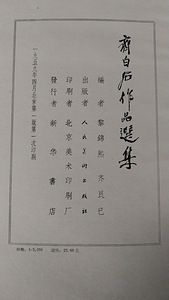 齊白石作品選集
編者 黎錦熙 齐良已
出版者 人民美術出版社
印刷者 北京美术印刷厂
發行者 新华書店
一九五九年四月北京第一版第一次印刷